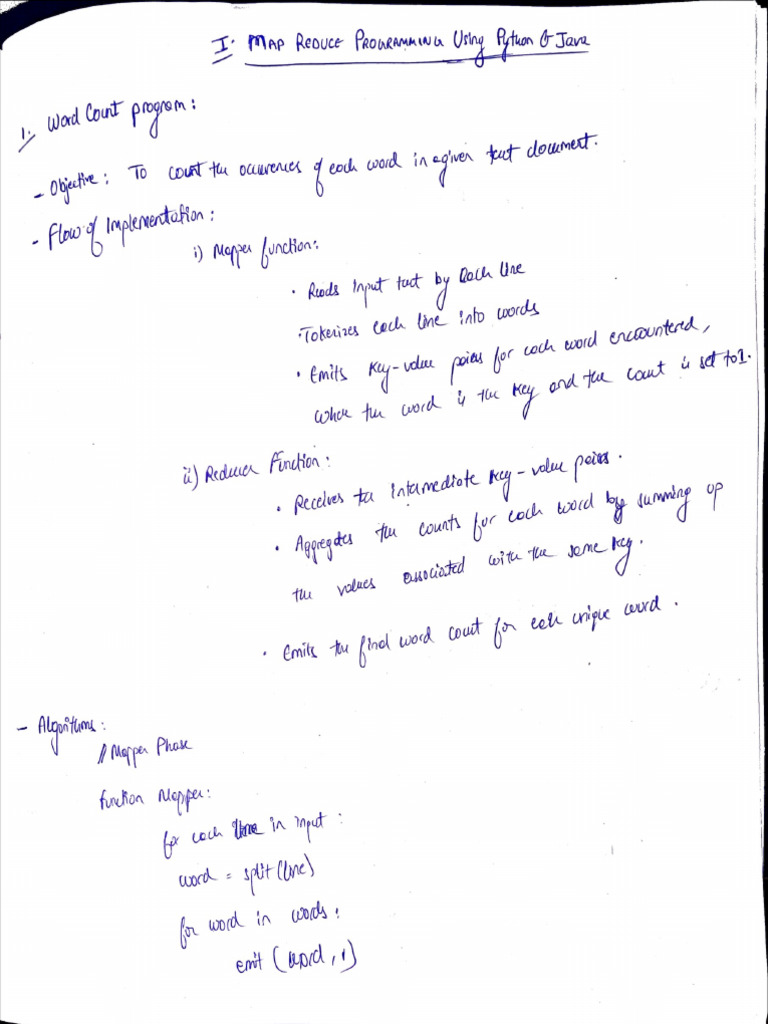 I. MAP REDUCE PROGRAMMING Using Python & Java
1. Word Count program:
- Objective: To count the occurences of each word in a given text document.
- Flow of Implementation:
i) Mapper function:
• Reads Input text by Each line
• Tokenizes each line into words
• Emits key-value pairs for each word encountered,
where the word is the key and the count is set to 1.
ii) Reducer Function:
• Receives the intermediate key-value pairs.
• Aggregates the counts for each word by summing up
the values associated with the same key.
• Emits the final word count for each unique word.
- Algorithms:
// Mapper Phase
function Mapper:
for each line in input:
word = split(line)
for word in words:
emit (word, 1)